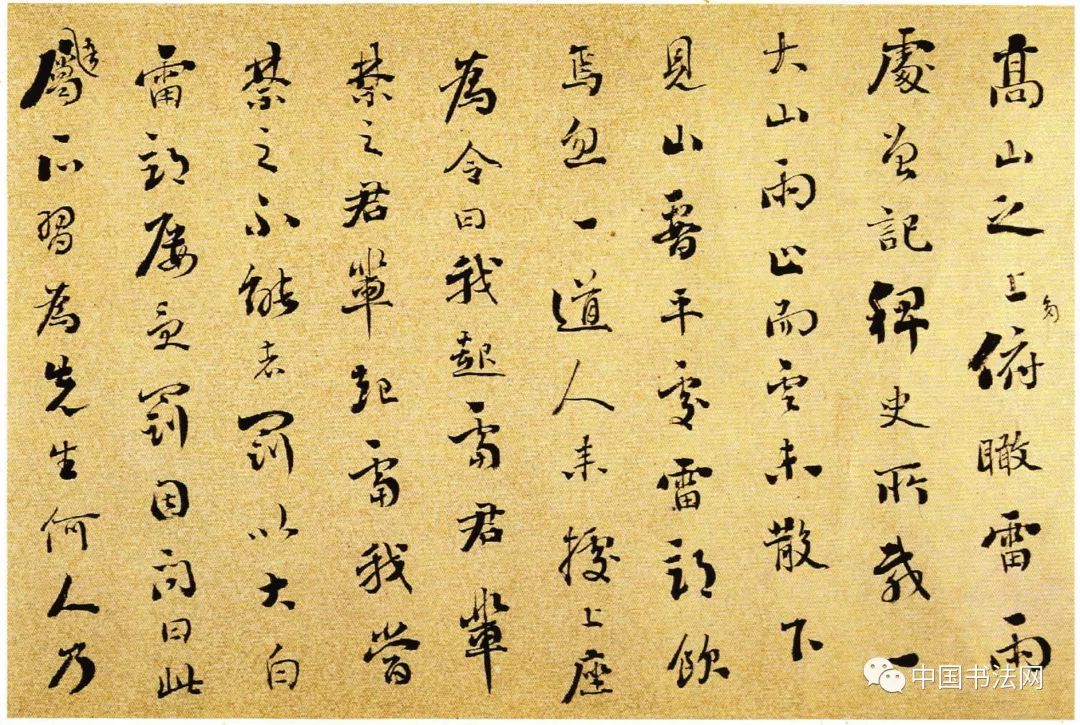 高山之上俯瞰雷雨
處曾記稗史所載一
大山雨止而雲未散下
見山腰平處雷部飲
焉忽一道人来據上座
為令曰我起雷君輩
禁之君輩起雷我當
禁之不能者罰以大白
雷部屢受罰因问曰此
屬所習為先生何人乃
中国书法网